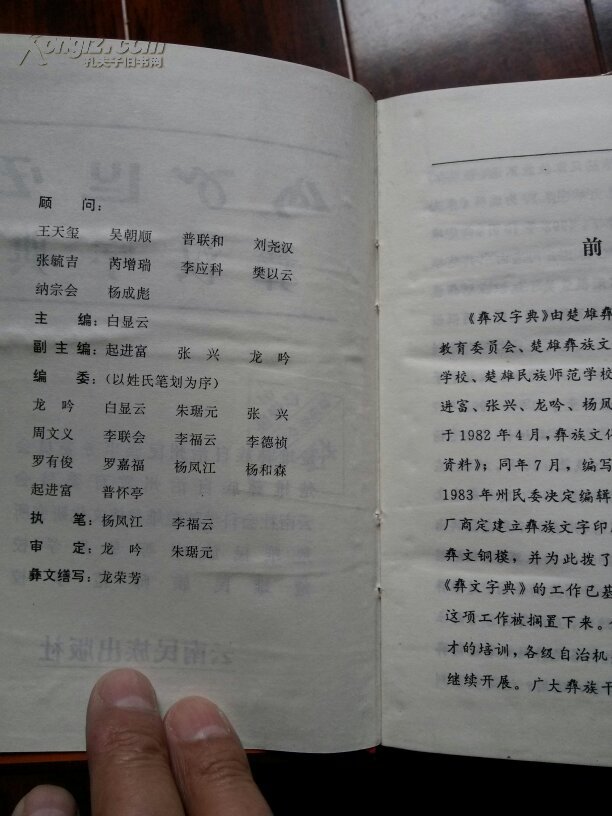 Kongfz.com
孔夫子旧书网
顾 问：
王天玺 吴朝顺 普联和 刘尧汉
张毓吉 芮增瑞 李应科 樊以云
纳宗会 杨成彪
主 编：白显云
副主编：起进富 张 兴 龙 吟
编 委：（以姓氏笔划为序）
龙 吟 白显云 朱琚元 张 兴
周文义 李联会 李福云 李德祯
罗有俊 罗嘉福 杨凤江 杨和森
起进富 普怀亭
执 笔：杨凤江 李福云
审 定：龙 吟 朱琚元
彝文缮写：龙荣芳
云南民族出版社
前
《彝汉字典》由楚雄彝
教育委员会、楚雄彝族文
学校、楚雄民族师范学校
进富、张兴、龙吟、杨凤
于1982年4月，彝族文化
资料》；同年7月，编写
1983年州民委决定编辑
厂商定建立彝族文字印
彝文铜模，并为此拨了
《彝文字典》的工作已基
这项工作被搁置下来。
才的培训，各级自治机
继续开展。广大彝族干